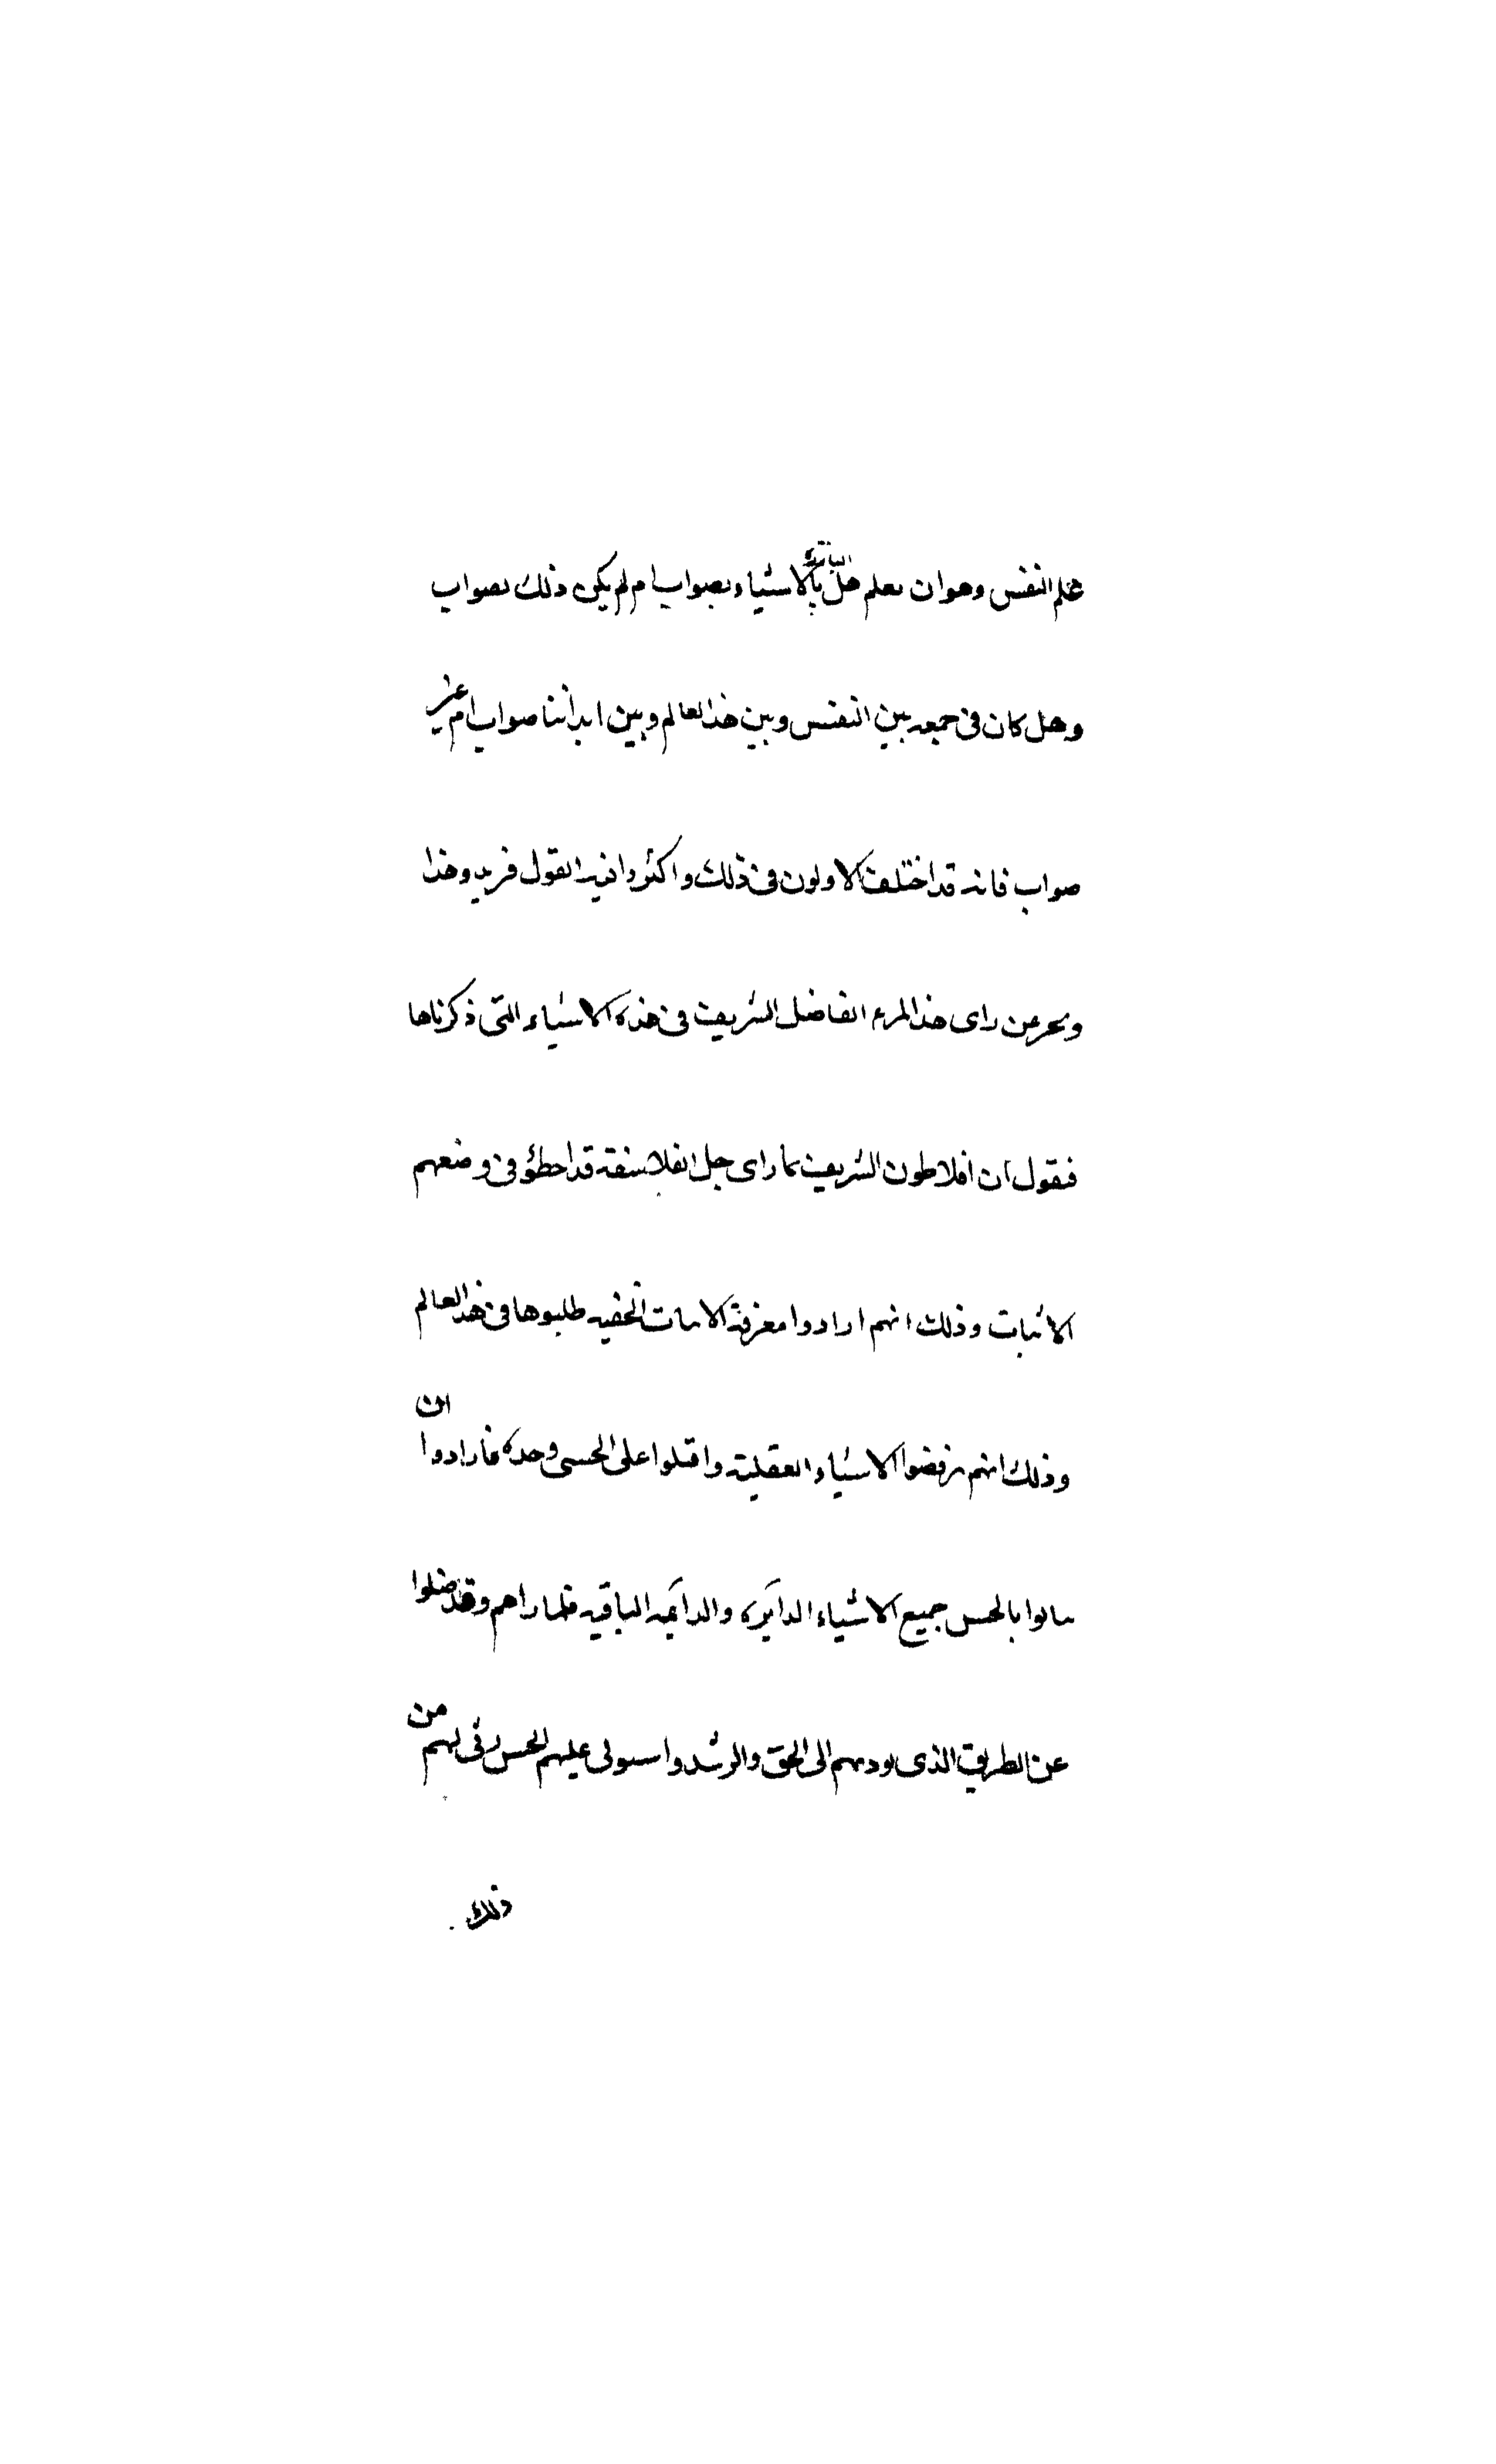 علم النفس وهوان تعلم هل بالاشياء بصواب ام لم يكن ذلك بصواب
وهل كان في جمعه بين النفس وبين هذا العالم وبين ابداننا صواب ام غير
صواب فانه قد اختلف الاولون في ذلك واكثروا فيه القول فريد وهذا
عن راى هذا المرء الفاضل الشريف في هذه الاشياء التى ذكرناها
فنقول ان افلاطون الشريف لما راى جل الفلاسفة قد اخطؤ في وضعهم
الانيات وذلك انهم ارادوا معرفة الانيات الخفيه طلبوها في هذا العالم
وذلك انهم رفضوا الاشياء العقلية واقبلوا على الحسى وحده فارادوا ان
ينالوا بالحس جميع الاشياء الدايره والدايمه الباقيه فلما راهم وقد ضلوا
عن الطريق الذى يوديهم الى الحق والرشد واستولى عليهم الحس رثى لهم من
ذلك